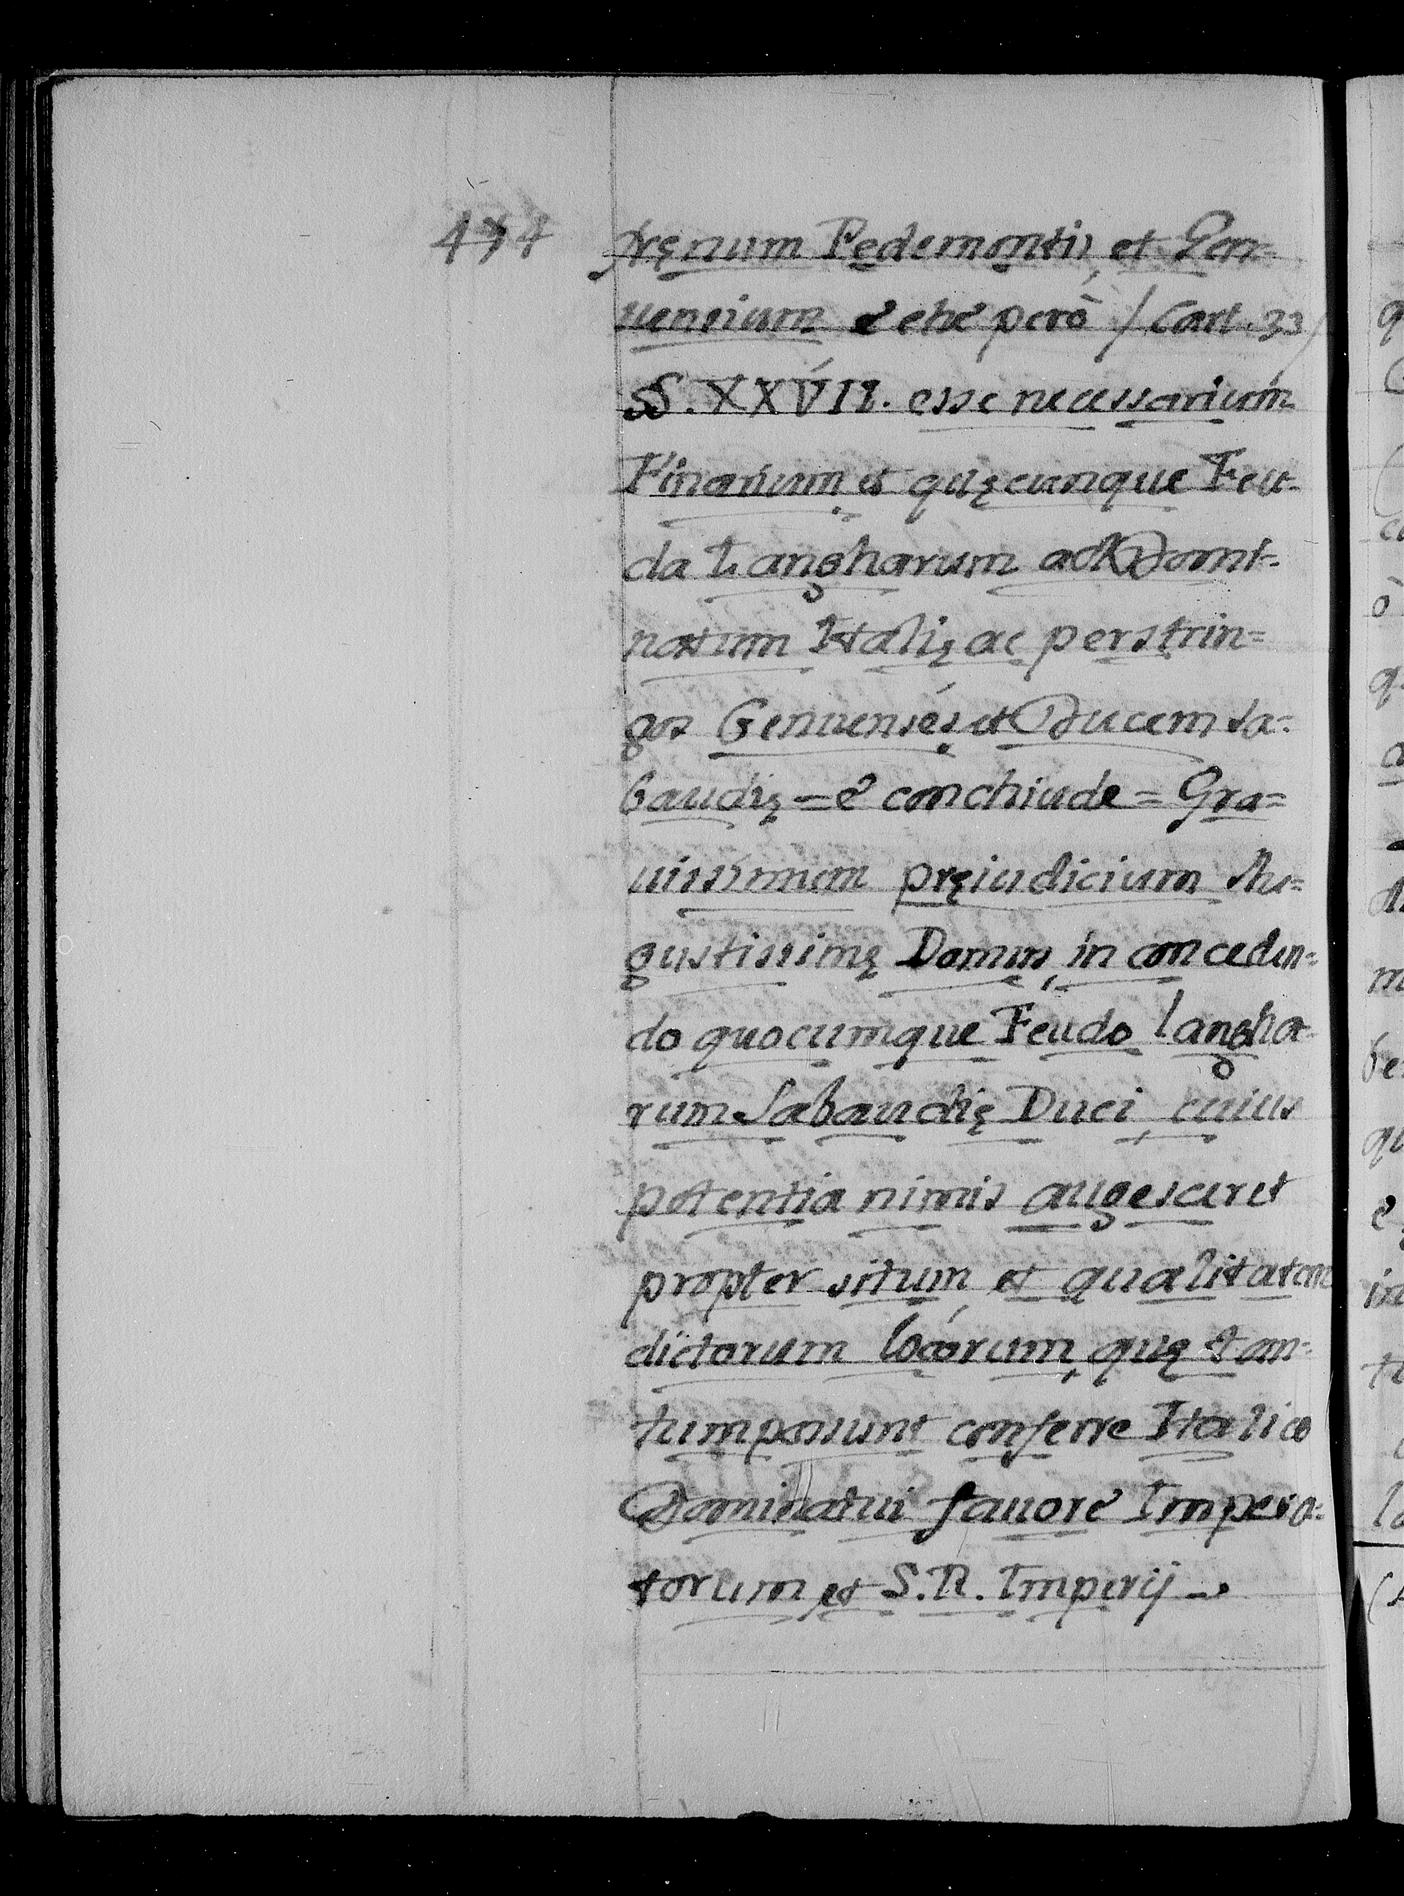 474
fręnum Pedemontis, et Gen-
uensium e che però / Cart. 33 /
§. XXVII. esse necessarium
Finarium et quęcunque Feu-
da Langharum ad Domi-
natum Italię ac perstrin=
gos Genuenses, et Ducem Sa=
baudię = e conchiude = Gra=
uissimum pręiudicium Au=
gustissimę Domus, in conceden=
do quocumque Feudo langha-
rum Sabaudię Duci, cuius
potentia nimis augesceret
propter situm et qualitatem
dictorum locorum, quę tan-
tum possunt conferre Italico
Dominatui fauore Impera=
torum et S. R. Imperij